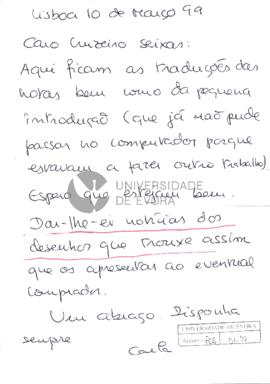 Lisboa 10 de Março 99
Caro Cruzeiro Seixas:
Aqui ficam as traduções das
notas bem como da pequena
introdução (que já não pude
passar no computador porque
estavam a fazer outro trabalho).
Espero que estejam bem.
UNIVERSIDADE
DE ÉVORA
Dar-lhe-ei notícias dos
desenhos que trouxe assim
que os apresentar ao eventual
comprador.
Um abraço. Disponha
sempre
UNIVERSIDADE DE ÉVORA
Carla